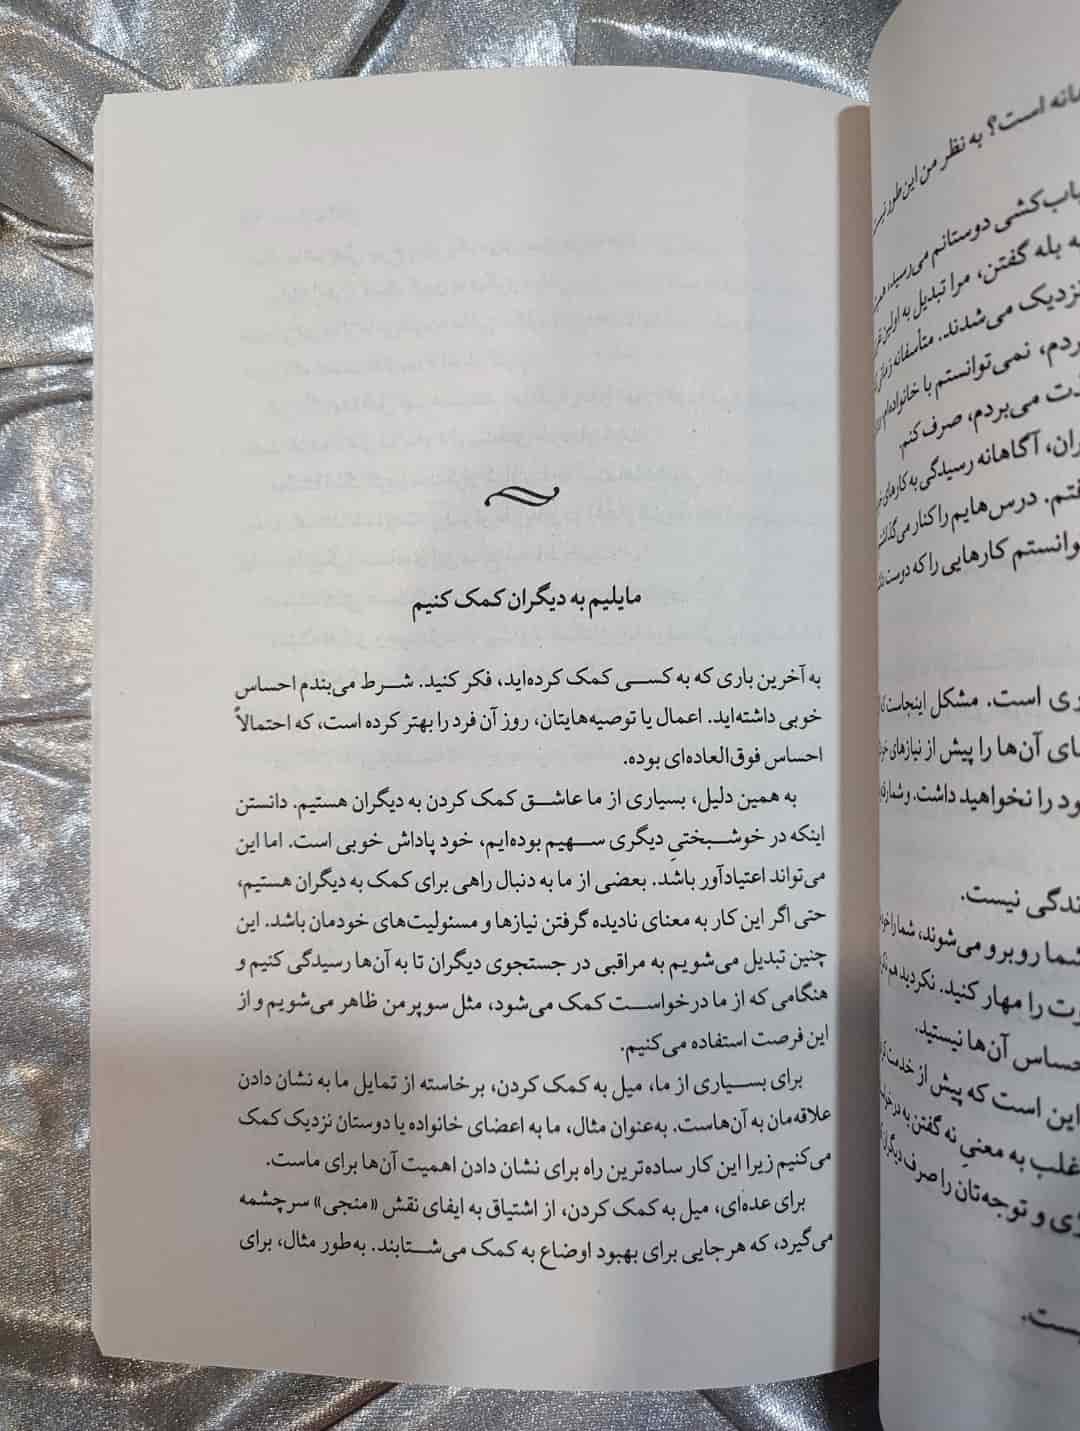 مانه است؟ به نظر من این‌طور نیست
باب‌کشی دوستانم می‌رسید، همی
ه بله گفتن، مرا تبدیل به اولین
نزدیک می‌شدند. متأسفانه زمانی
ردم، نمی‌توانستم با خانواده‌ام
ذت می‌بردم، صرف کنم.
ران، آگاهانه رسیدگی به کارهای
فتم. درس‌هایم را کنار می‌گذاشتم
وانستم کارهایی را که دوست
ری است. مشکل اینجاست که
ای آن‌ها را پیش از نیازهای خود
ود را نخواهید داشت. و شما
ندگی نیست.
شما روبرو می‌شوند، شما را
رت را مهار کنید. نکردید هم
حساس آن‌ها نیستید.
این است که پیش از خدمت
غلب به معنیِ نه گفتن به
ژی و توجه‌تان را صرف دیگران
یست.
مایلیم به دیگران کمک کنیم
به آخرین باری که به کسی کمک کرده‌اید، فکر کنید. شرط می‌بندم احساس
خوبی داشته‌اید. اعمال یا توصیه‌هایتان، روز آن فرد را بهتر کرده است، که احتمالاً
احساس فوق‌العاده‌ای بوده.
به همین دلیل، بسیاری از ما عاشق کمک کردن به دیگران هستیم. دانستن
اینکه در خوشبختیِ دیگری سهیم بوده‌ایم، خود پاداش خوبی است. اما این
می‌تواند اعتیادآور باشد. بعضی از ما به دنبال راهی برای کمک به دیگران هستیم،
حتی اگر این کار به معنای نادیده گرفتن نیازها و مسئولیت‌های خودمان باشد. این
چنین تبدیل می‌شویم به مراقبی در جستجوی دیگران تا به آن‌ها رسیدگی کنیم و
هنگامی که از ما درخواست کمک می‌شود، مثل سوپرمن ظاهر می‌شویم و از
این فرصت استفاده می‌کنیم.
برای بسیاری از ما، میل به کمک کردن، برخاسته از تمایل ما به نشان دادن
علاقه‌مان به آن‌هاست. به‌عنوان مثال، ما به اعضای خانواده یا دوستان نزدیک کمک
می‌کنیم زیرا این کار ساده‌ترین راه برای نشان دادن اهمیت آن‌ها برای ماست.
برای عده‌ای، میل به کمک کردن، از اشتیاق به ایفای نقش «منجی» سرچشمه
می‌گیرد، که هرجایی برای بهبود اوضاع به کمک می‌شتابند. به‌طور مثال، برای